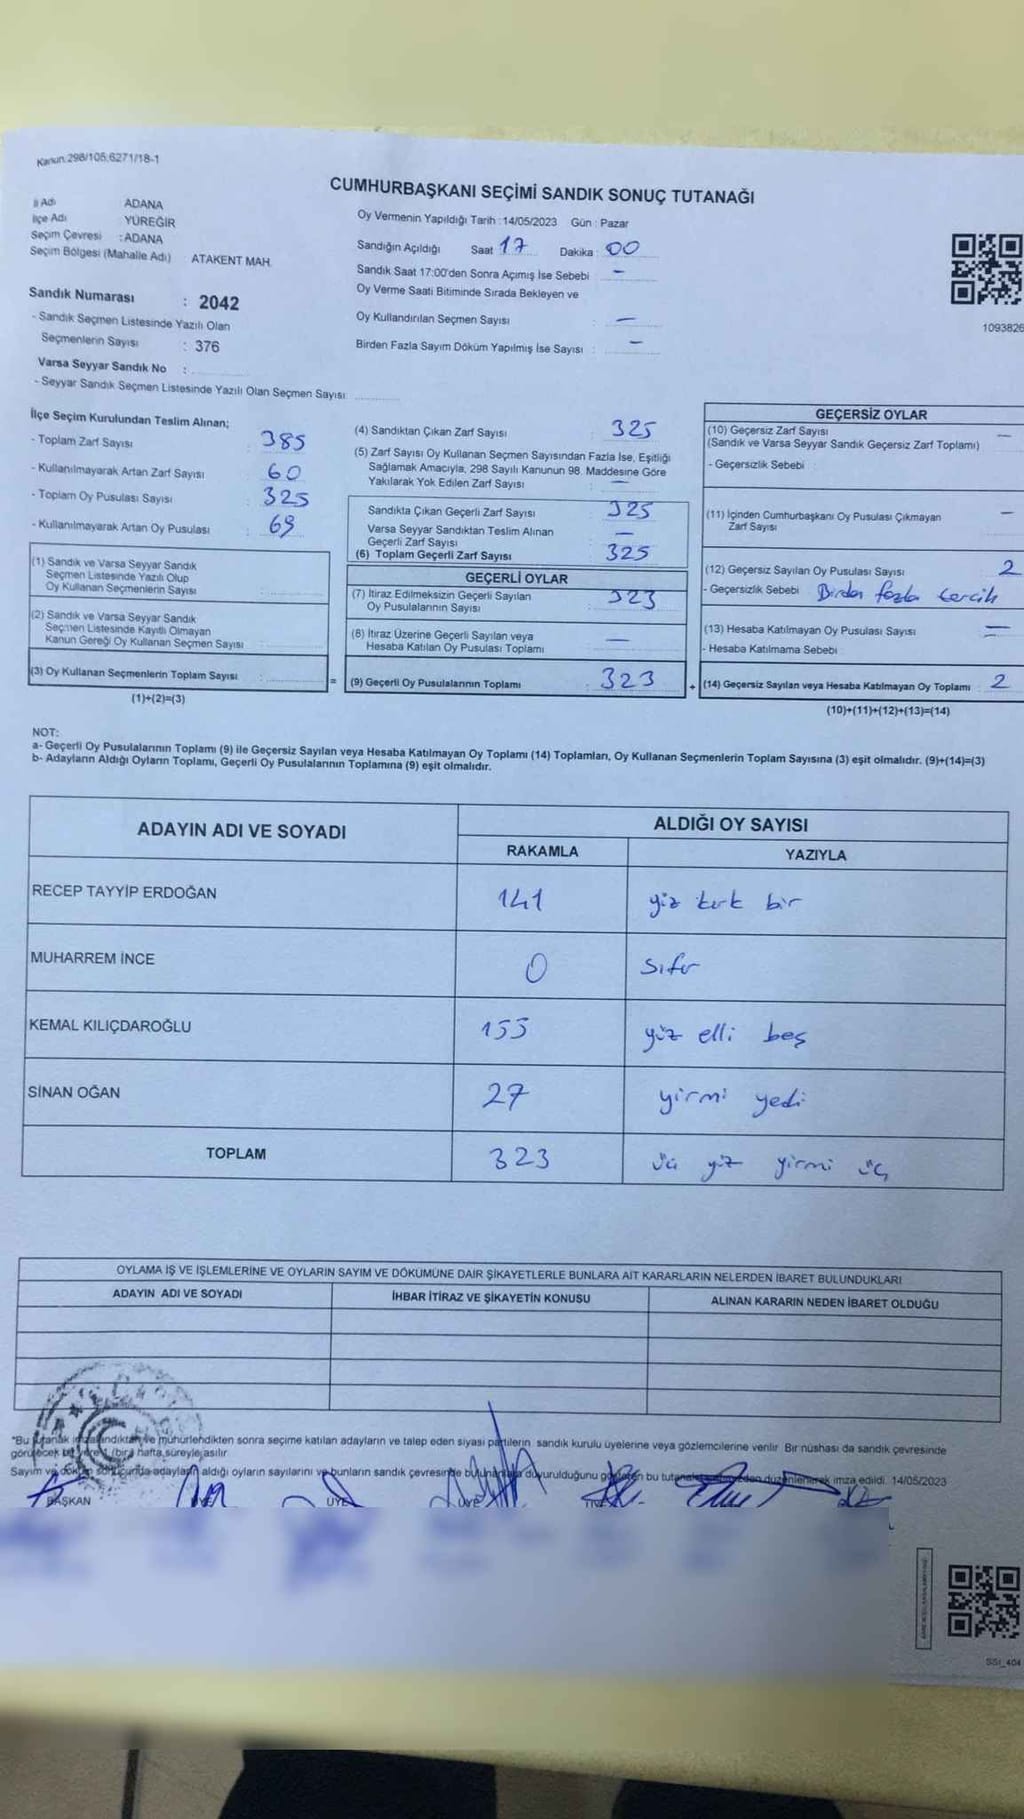 Kanun:298/105;6271/18-1
CUMHURBAŞKANI SEÇİMİ SANDIK SONUÇ TUTANAĞI
İl Adı ADANA
İlçe Adı YÜREĞİR
Seçim Çevresi :ADANA
Seçim Bölgesi (Mahalle Adı) ATAKENT MAH.
Sandık Numarası : 2042
- Sandık Seçmen Listesinde Yazılı Olan
Seçmenlerin Sayısı : 376
Varsa Seyyar Sandık No :
- Seyyar Sandık Seçmen Listesinde Yazılı Olan Seçmen Sayısı
Oy Vermenin Yapıldığı Tarih :14/05/2023 Gün : Pazar
Sandığın Açıldığı Saat 17 Dakika : 00
Sandık Saat 17:00'den Sonra Açımış İse Sebebi : -
Oy Verme Saati Bitiminde Sırada Bekleyen ve
Oy Kullandırılan Seçmen Sayısı : -
Birden Fazla Sayım Döküm Yapılmış İse Sayısı : -
1093826
İlçe Seçim Kurulundan Teslim Alınan;
- Toplam Zarf Sayısı : 385
- Kullanılmayarak Artan Zarf Sayısı : 60
- Toplam Oy Pusulası Sayısı : 325
- Kullanılmayarak Artan Oy Pusulası : 69
(1) Sandık ve Varsa Seyyar Sandık
Seçmen Listesinde Yazılı Olup
Oy Kullanan Seçmenlerin Sayısı :
(2) Sandık ve Varsa Seyyar Sandık
Seçmen Listesinde Kayıtlı Olmayan
Kanun Gereği Oy Kullanan Seçmen Sayısı :
(3) Oy Kullanan Seçmenlerin Toplam Sayısı :
(1)+(2)=(3)
=
(4) Sandıktan Çıkan Zarf Sayısı : 325
(5) Zarf Sayısı Oy Kullanan Seçmen Sayısından Fazla İse, Eşitliği
Sağlamak Amacıyla, 298 Sayılı Kanunun 98. Maddesine Göre
Yakılarak Yok Edilen Zarf Sayısı : -
Sandıkta Çıkan Geçerli Zarf Sayısı : 325
Varsa Seyyar Sandıktan Teslim Alınan
Geçerli Zarf Sayısı : -
(6) Toplam Geçerli Zarf Sayısı : 325
GEÇERLİ OYLAR
(7) İtiraz Edilmeksizin Geçerli Sayılan
Oy Pusulalarının Sayısı : 323
(8) İtiraz Üzerine Geçerli Sayılan veya
Hesaba Katılan Oy Pusulası Toplamı : -
(9) Geçerli Oy Pusulalarının Toplamı : 323
+
GEÇERSİZ OYLAR
(10) Geçersiz Zarf Sayısı : -
(Sandık ve Varsa Seyyar Sandık Geçersiz Zarf Toplamı)
- Geçersizlik Sebebi :
(11) İçinden Cumhurbaşkanı Oy Pusulası Çıkmayan -
Zarf Sayısı
(12) Geçersiz Sayılan Oy Pusulası Sayısı : 2
- Geçersizlik Sebebi Birden fazla tercih
(13) Hesaba Katılmayan Oy Pusulası Sayısı : -
- Hesaba Katılmama Sebebi
(14) Geçersiz Sayılan veya Hesaba Katılmayan Oy Toplamı : 2
(10)+(11)+(12)+(13)=(14)
NOT:
a- Geçerli Oy Pusulalarının Toplamı (9) ile Geçersiz Sayılan veya Hesaba Katılmayan Oy Toplamı (14) Toplamları, Oy Kullanan Seçmenlerin Toplam Sayısına (3) eşit olmalıdır. (9)+(14)=(3)
b- Adayların Aldığı Oyların Toplamı, Geçerli Oy Pusulalarının Toplamına (9) eşit olmalıdır.
ADAYIN ADI VE SOYADI ALDIĞI OY SAYISI
RAKAMLA YAZIYLA
RECEP TAYYİP ERDOĞAN 141 yüz kırk bir
MUHARREM İNCE 0 sıfır
KEMAL KILIÇDAROĞLU 155 yüz elli beş
SİNAN OĞAN 27 yirmi yedi
TOPLAM 323 üç yüz yirmi üç
OYLAMA İŞ VE İŞLEMLERİNE VE OYLARIN SAYIM VE DÖKÜMÜNE DAİR ŞİKAYETLERLE BUNLARA AİT KARARLARIN NELERDEN İBARET BULUNDUKLARI
ADAYIN ADI VE SOYADI İHBAR İTİRAZ VE ŞİKAYETİN KONUSU ALINAN KARARIN NEDEN İBARET OLDUĞU
"Bu tutanak imzalandıktan ve mühürlendikten sonra seçime katılan adayların ve talep eden siyasi partilerin sandık kurulu üyelerine veya gözlemcilerine verilir. Bir nüshası da sandık çevresinde
görülecek bir yere 1 (bir) hafta süreyle asılır.
Sayım ve döküm sonucunda adayların aldığı oyların sayılarını ve bunların sandık çevresinde bulunanlara duyurulduğunu gösteren bu tutanak düzenlenerek imza edildi. 14/05/2023
BAŞKAN ÜYE ÜYE ÜYE
SSI_404